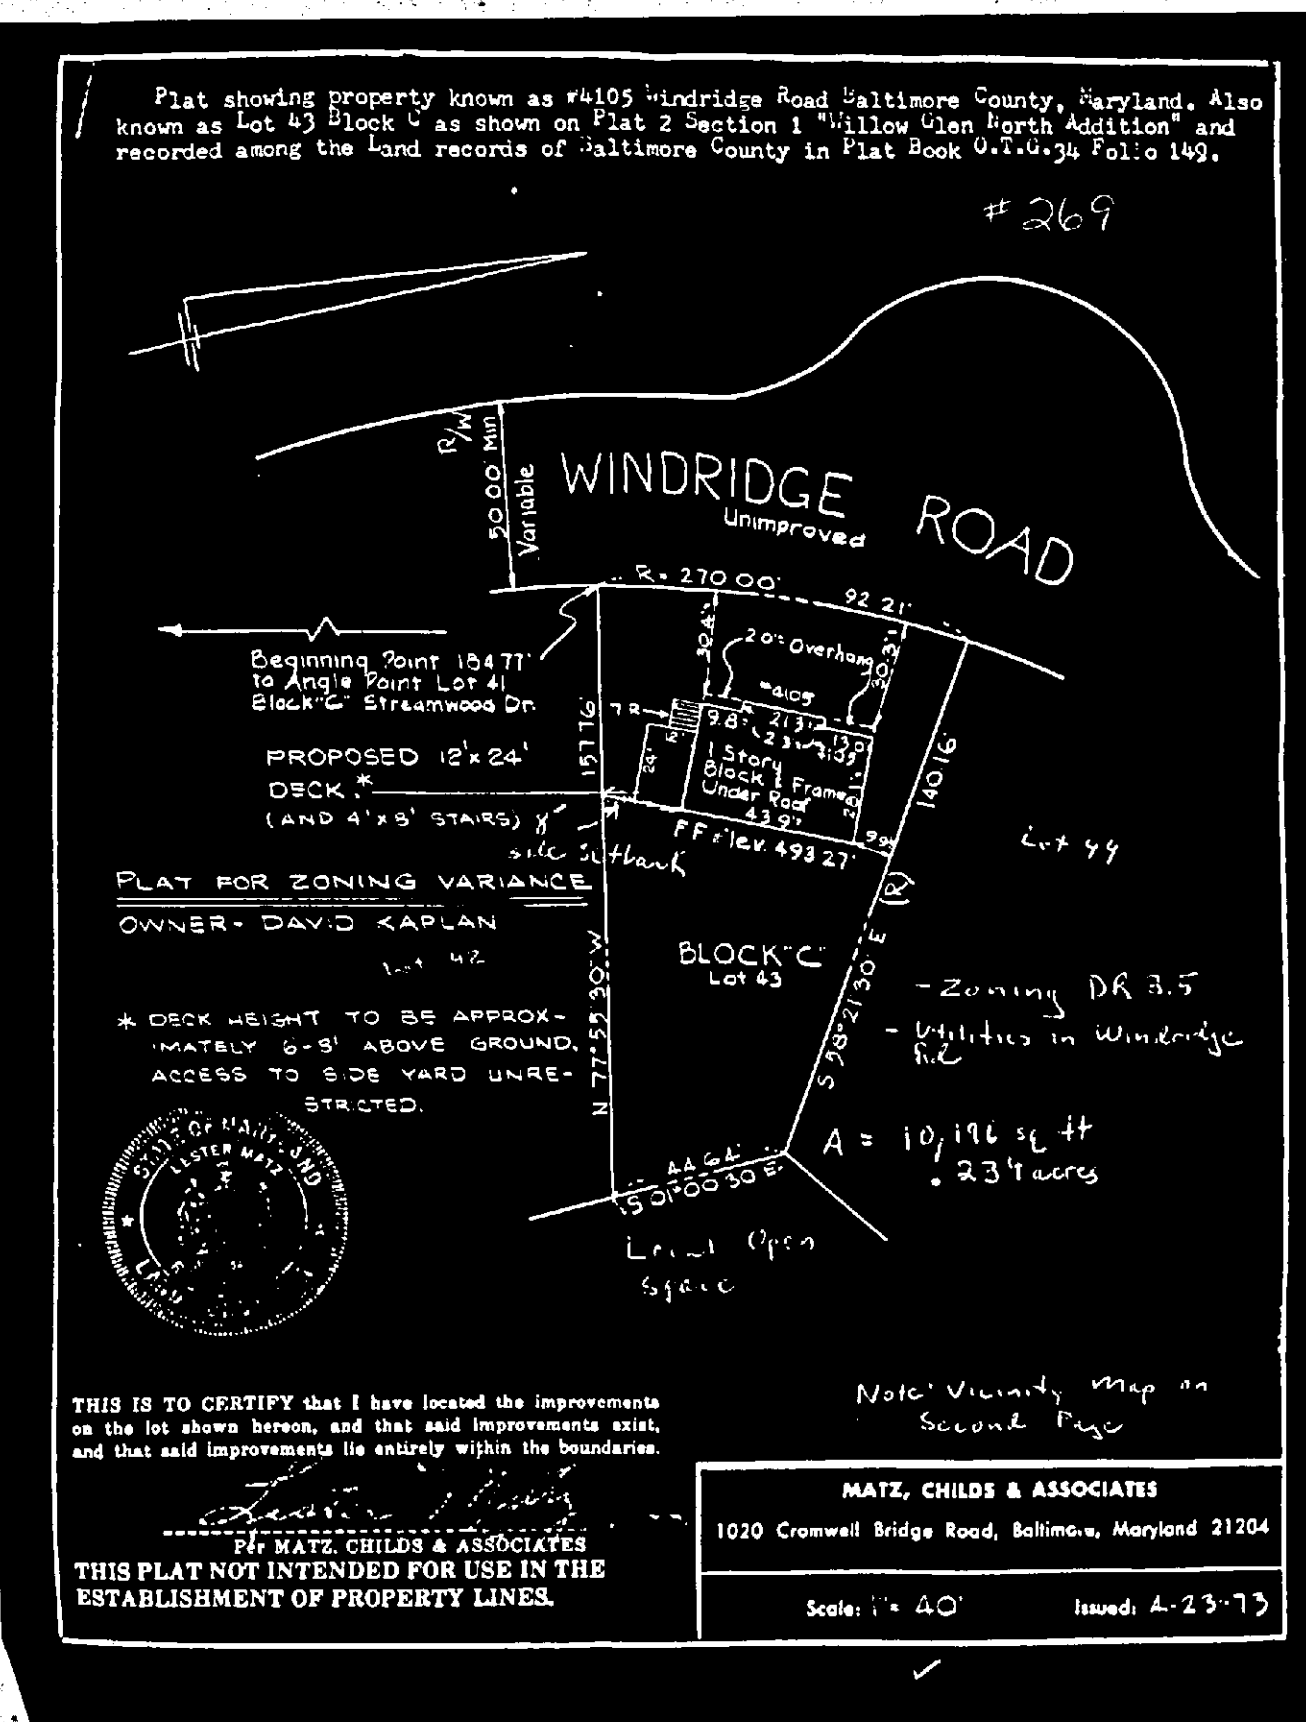 Plat showing property known as #4105 Windridge Road Baltimore County, Maryland. Also
known as Lot 43 Block C as shown on Plat 2 Section 1 "Willow Glen North Addition" and
recorded among the Land records of Baltimore County in Plat Book O.T.G.34 Folio 149.
#269
R/W
50.00' Min
Variable
WINDRIDGE ROAD
Unimproved
R= 270.00'
92.21'
30.4'
2.0'± Overhang
30.3'
Beginning Point 184.77'
to Angle Point Lot 41
Block "C" Streamwood Dr.
#4105
7 R
9.8'
21.3'
13.0'
12'
24'
157.76'
140.16'
1 Story
Block & Frame
Under Roof
43.9'
9.9'
FF Elev. 493.27'
PROPOSED 12'x 24'
DECK.*
(AND 4'x 8' STAIRS)
8'
side setback
Lot 44
PLAT FOR ZONING VARIANCE
OWNER- DAVID KAPLAN
Lot 42
BLOCK "C"
Lot 43
N 77° 55' 30" W
S 58° 21' 30" E (R)
- Zoning DR 3.5
- Utilities in Windridge
Rd
* DECK HEIGHT TO BE APPROX-
IMATELY 6-8' ABOVE GROUND.
ACCESS TO SIDE YARD UNRE-
STRICTED.
A = 10,196 sq ft
.234 acres
STATE OF MARYLAND
LESTER MATZ
LAND
44.64'
S 01° 00' 30" E
Local Open
Space
THIS IS TO CERTIFY that I have located the improvements
on the lot shown hereon, and that said improvements exist,
and that said improvements lie entirely within the boundaries.
Note: Vicinity Map on
Second Page
Per MATZ, CHILDS & ASSOCIATES
THIS PLAT NOT INTENDED FOR USE IN THE
ESTABLISHMENT OF PROPERTY LINES.
MATZ, CHILDS & ASSOCIATES
1020 Cromwell Bridge Road, Baltimore, Maryland 21204
Scale: 1"= 40'
Issued: 4-23-73